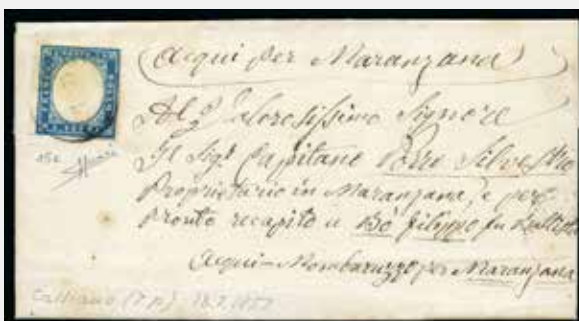 Acqui per Maranzana
Al Valorosissimo Signore
Il Sigr Capitano Porro Silvestro
Proprietario in Maranzana, e per
Pronto recapito a Bò Filippo fu
Acqui-Mombaruzzo per Maranzana
15c
Calliano (7 p.)